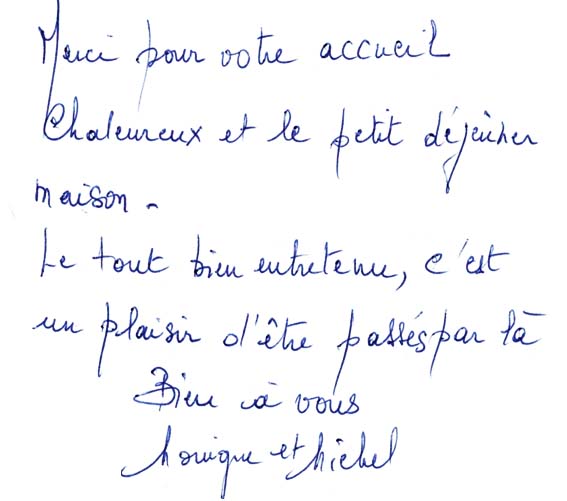 Merci pour votre accueil
Chaleureux et le petit déjeûner
maison.
Le tout bien entretenu, c'est
un plaisir d'être passés par là
Bien à vous
Monique et Michel